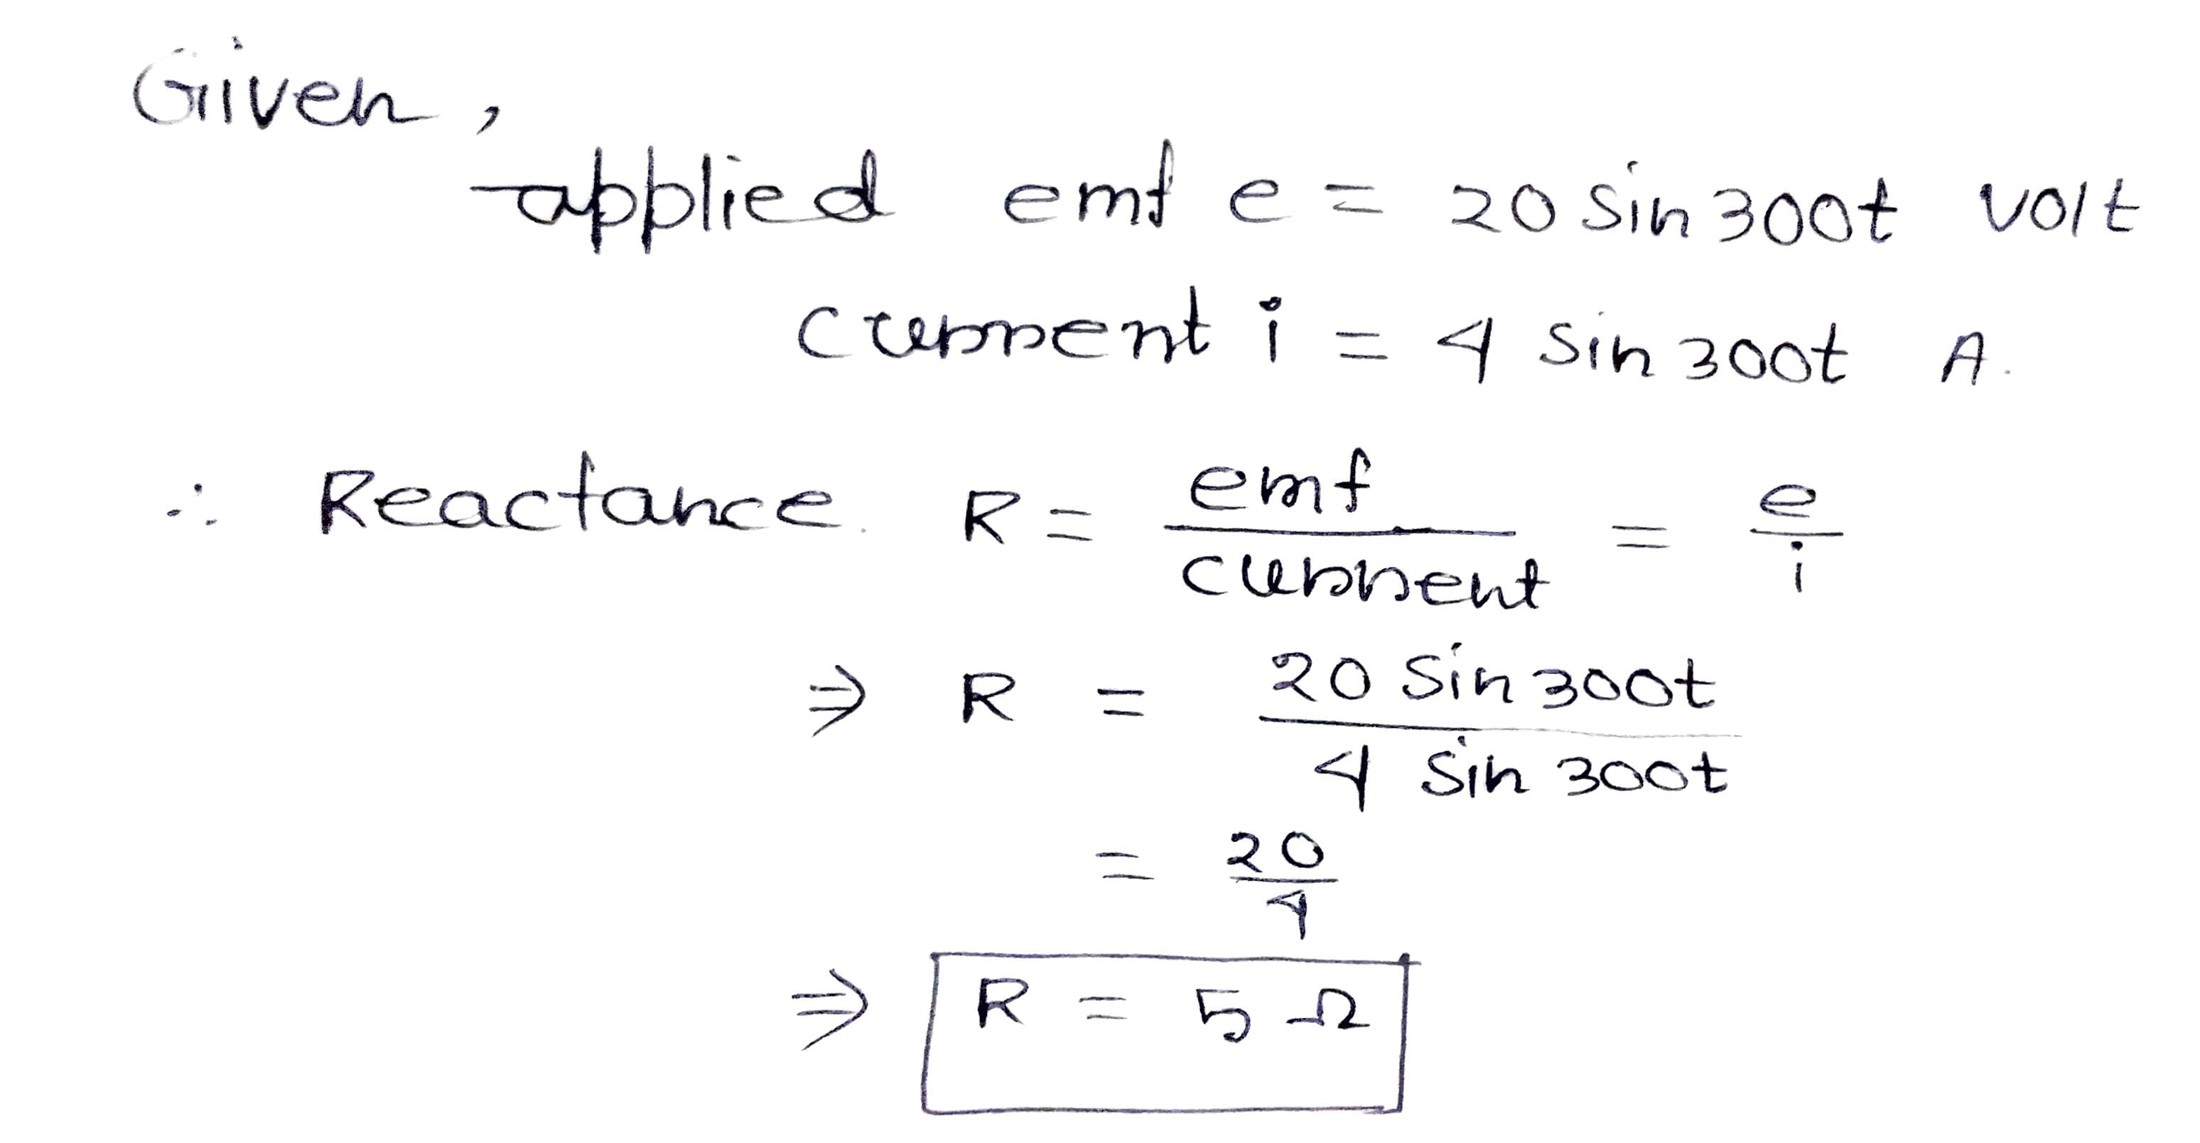 Given,
applied emf e = 20 sin 300t volt
current i = 4 sin 300t A.
∴ Reactance R = emf / current = e / i
⇒ R = 20 sin 300t / 4 sin 300t
= 20 / 4
⇒ R = 5 Ω